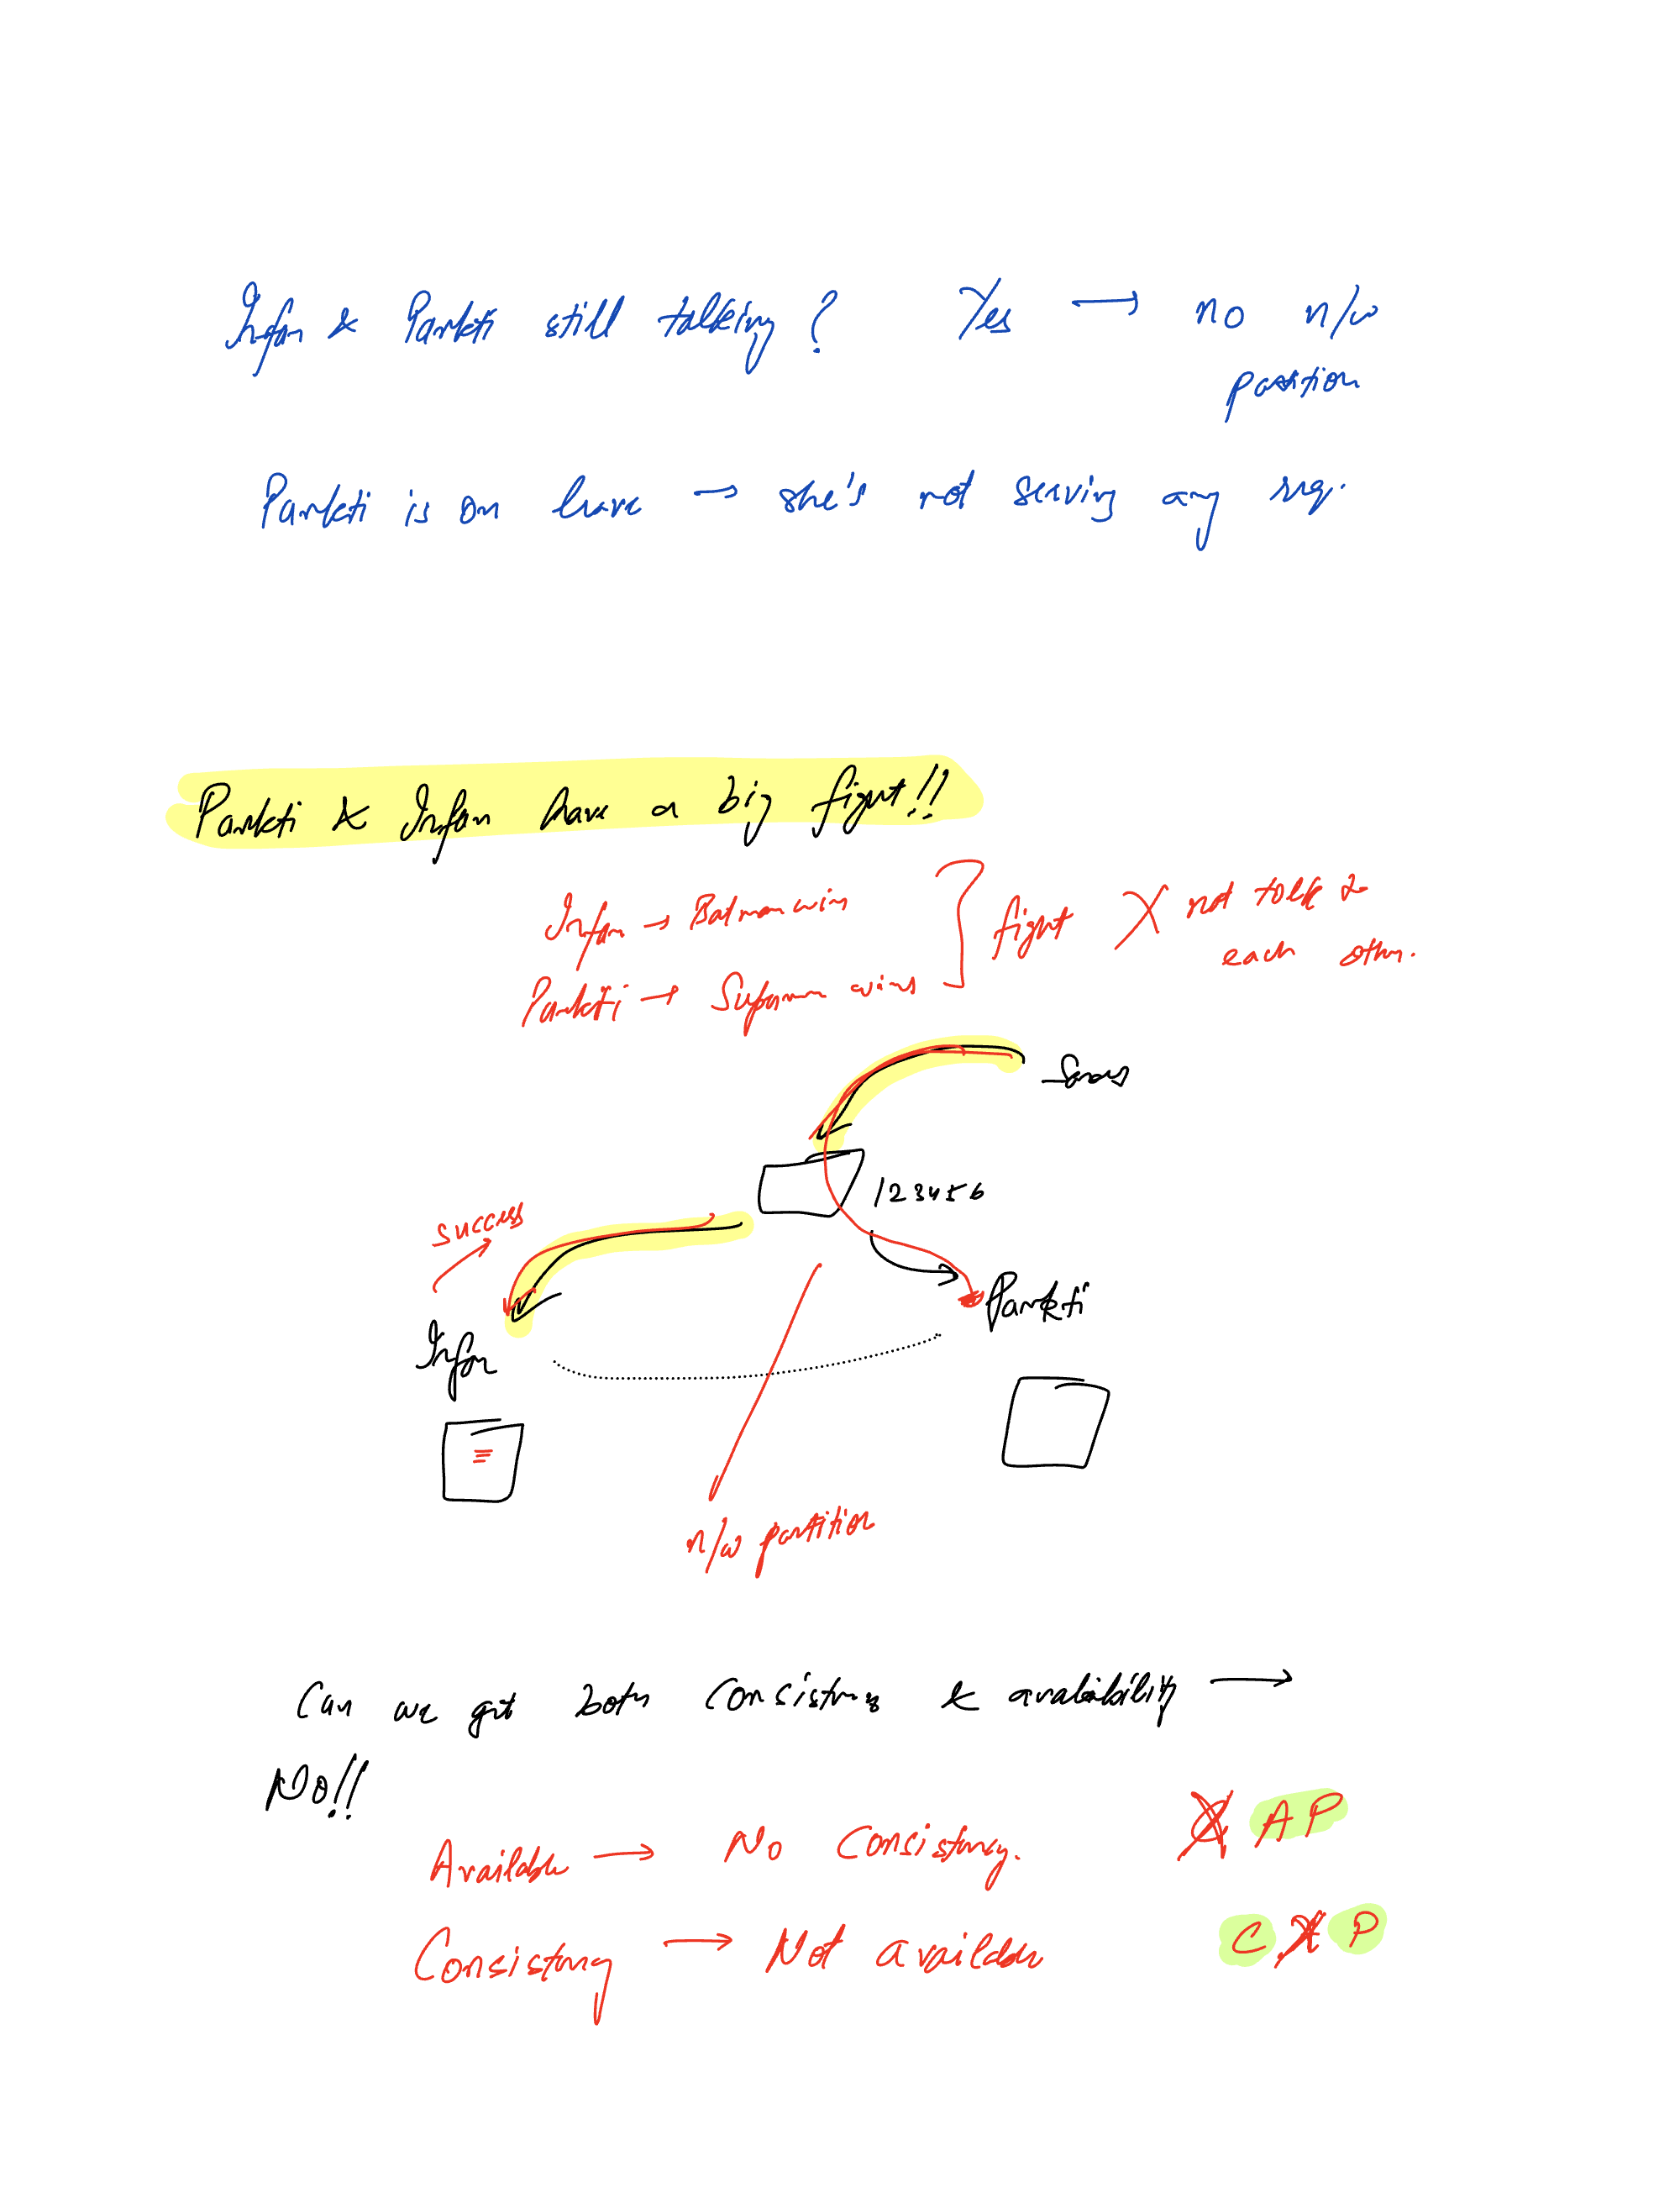 Irfan & Pankti still talking? Yes → no n/w
partition
Pankti is on leave → she's not serving any req.
Pankti & Irfan have a big fight!!
Irfan → Batman wins
Pankti → Superman wins
fight X not talk to
each other.
123456
success
Pankti
Irfan
n/w partition
Can we get both consistency & availability →
No!!
Available → No Consistency.
C AP
Consistency → Not available
C A P